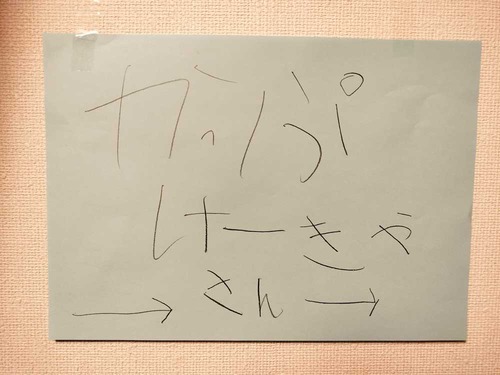 かっぷ
けーきや
→ さん →